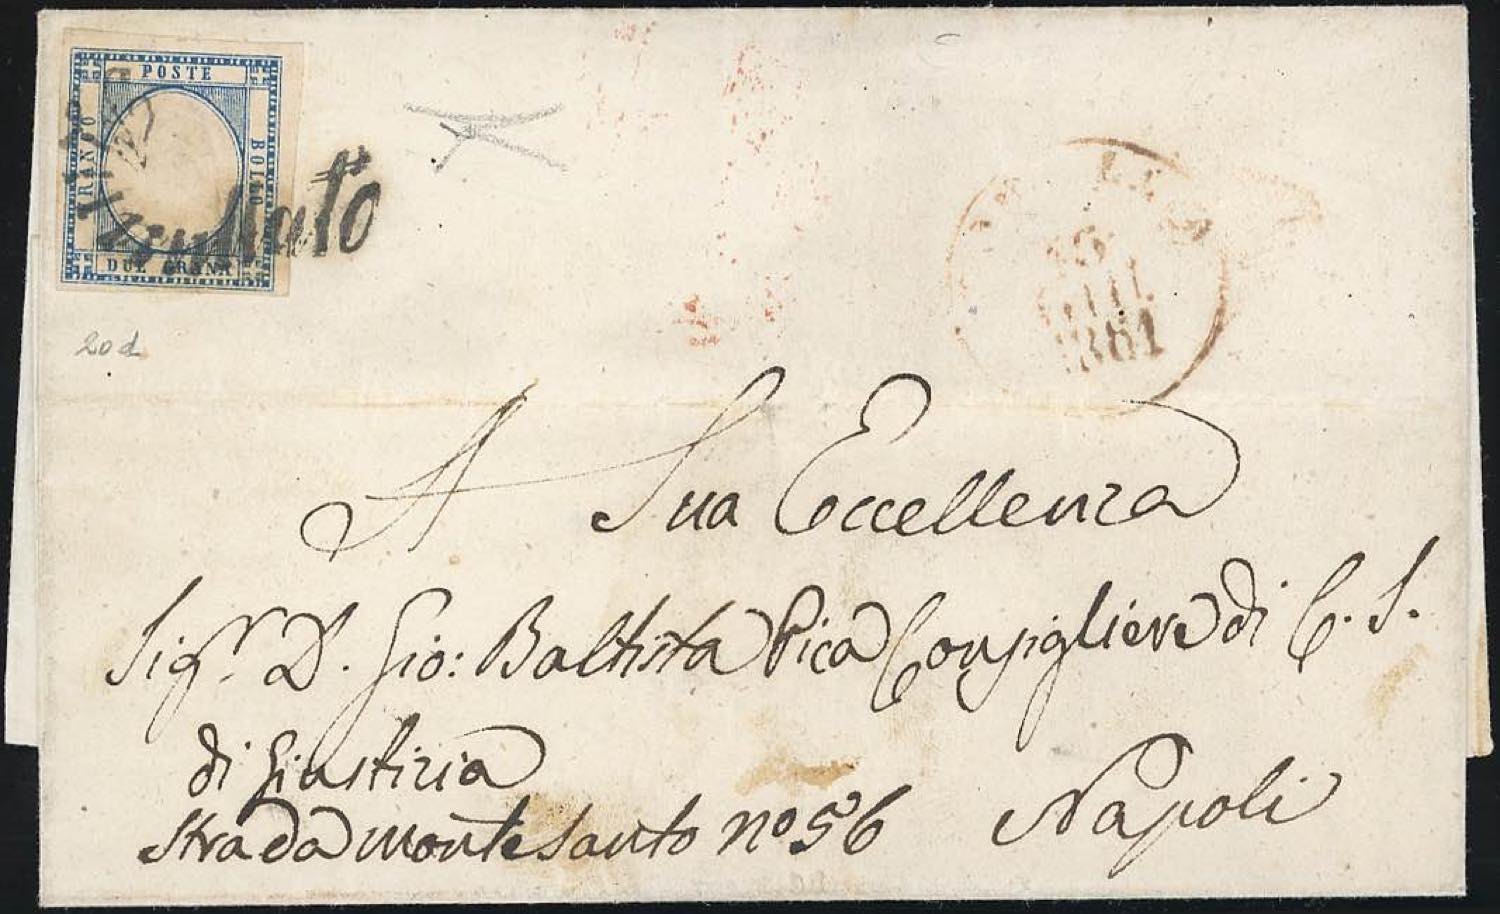 POSTE
FRANCO
BOLLO
DUE GRANA
20 d
1861
A Sua Eccellenza
Sigr. D. Gio: Battista Pica Consigliere di C. S.
di Giustizia
Strada Monte Santo no 56 Napoli